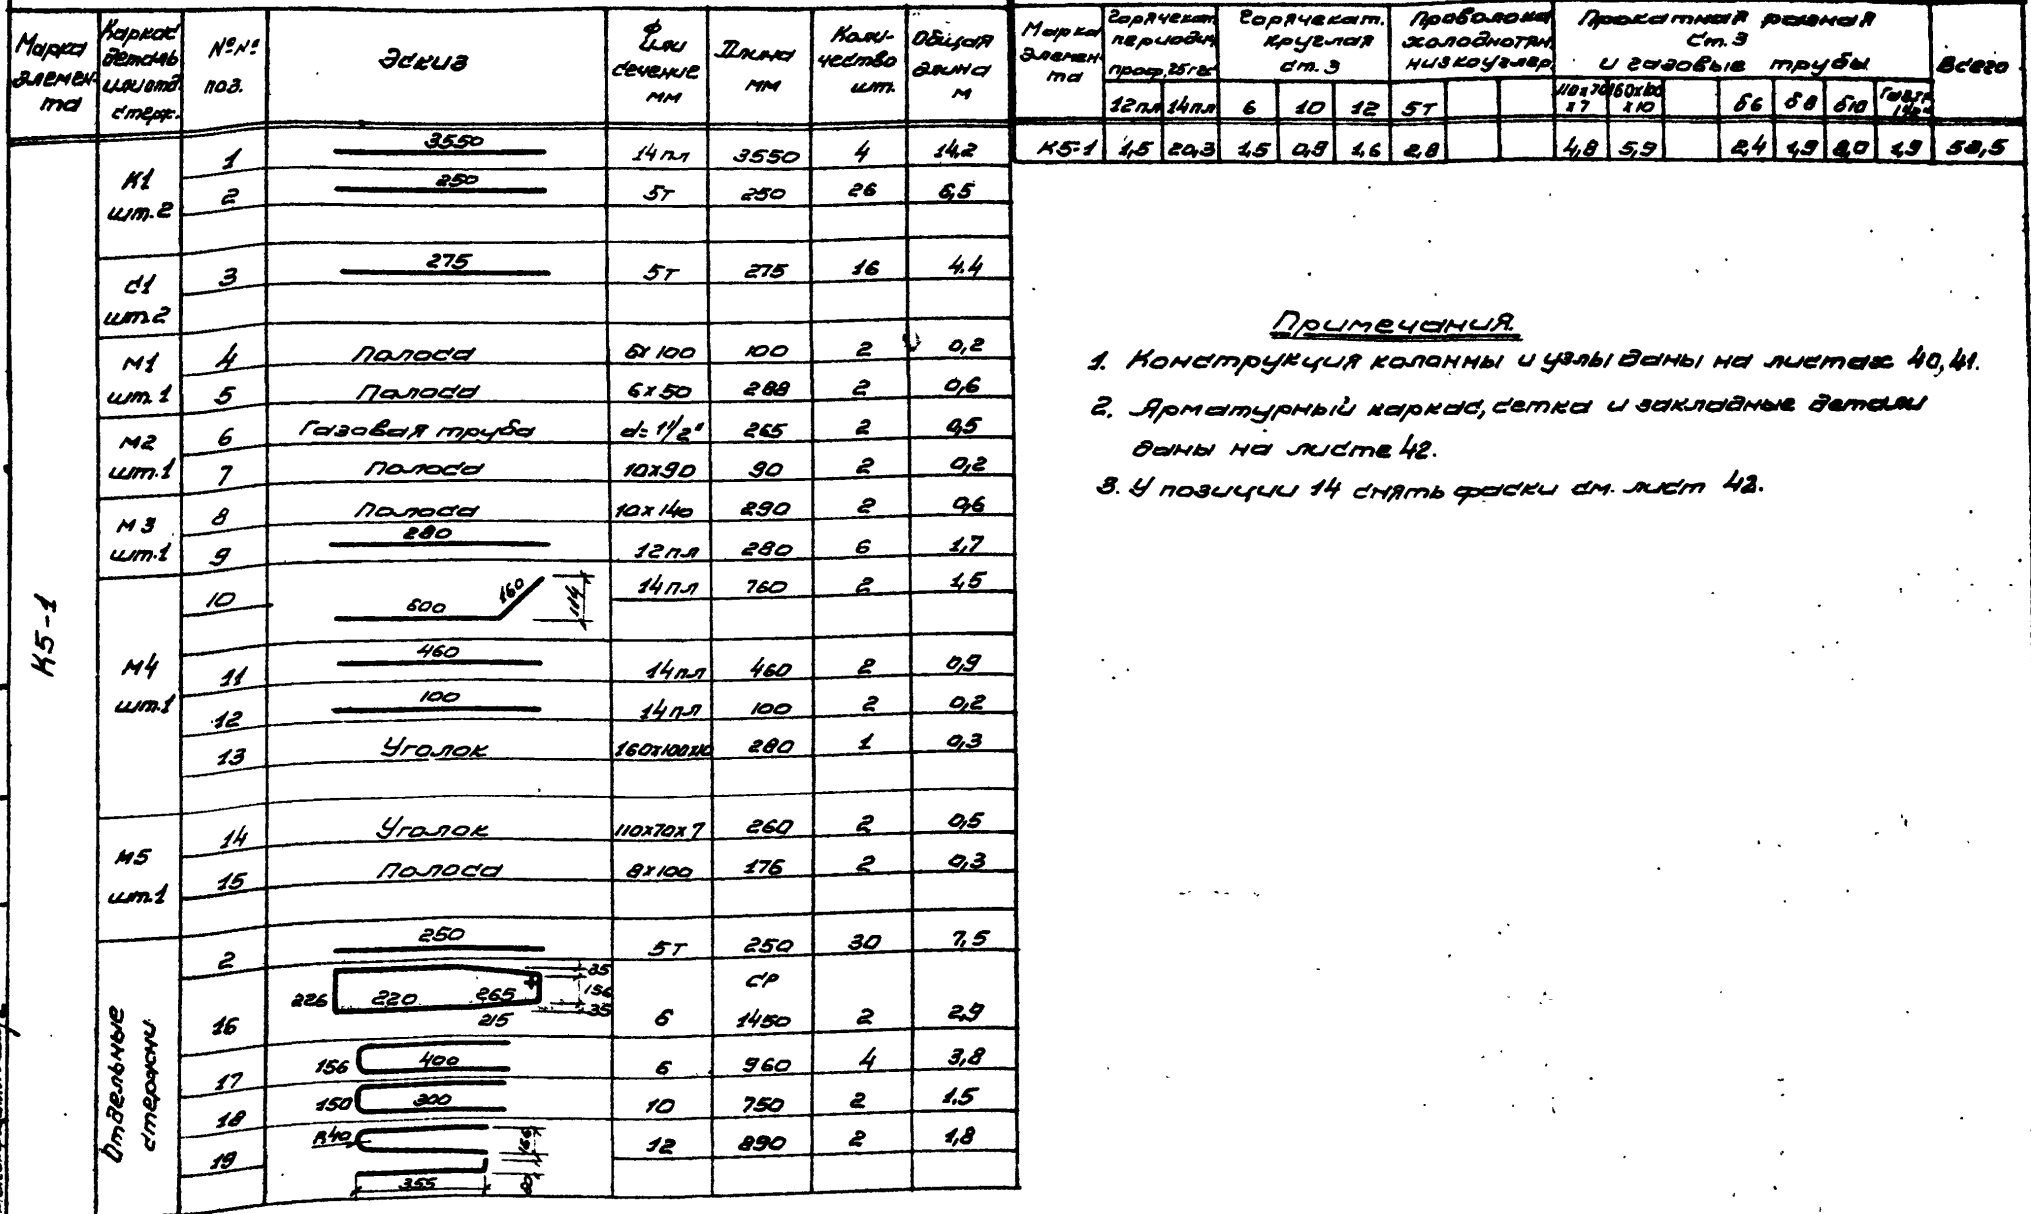 Марка элемента | Каркас деталь или отд. стерж. | №№ поз. | Эскиз | Ф или сечение мм | Длина мм | Количество шт. | Общая длина м
К5-1
К1 шт.2 | 1 | 3550 | 14пл | 3550 | 4 | 14,2
2 | 250 | 5т | 250 | 26 | 6,5
С1 шт.2 | 3 | 275 | 5т | 275 | 16 | 4.4
М1 шт.1 | 4 | Полоса | 6х100 | 100 | 2 | 0,2
5 | Полоса | 6х50 | 288 | 2 | 0,6
М2 шт.1 | 6 | Газовая труба | d=1 1/2" | 265 | 2 | 0,5
7 | Полоса | 10х90 | 90 | 2 | 0,2
М3 шт.1 | 8 | Полоса | 10х140 | 290 | 2 | 0,6
9 | 280 | 12пл | 280 | 6 | 1,7
М4 шт.1 | 10 | 600 160 114 | 14пл | 760 | 2 | 1,5
11 | 460 | 14пл | 460 | 2 | 0,9
12 | 100 | 14пл | 100 | 2 | 0,2
13 | Уголок | 160х100х10 | 280 | 1 | 0,3
М5 шт.1 | 14 | Уголок | 110х70х7 | 260 | 2 | 0,5
15 | Полоса | 8х100 | 176 | 2 | 0,3
Отдельные стержни | 2 | 250 | 5т | 250 | 30 | 7,5
16 | 226 220 265 215 35 156 35 | 6 | ср 1450 | 2 | 2,9
17 | 156 400 | 6 | 960 | 4 | 3,8
18 | 150 300 | 10 | 750 | 2 | 1.5
19 | R40 355 | 12 | 890 | 2 | 1,8
Марка элемента | Горячекат. периодич. проф. 25г2с | Горячекат. круглая ст.3 | Проволока холоднотян. низкоуглер. | Прокатная разная ст.3 и газовые трубы | Всего
12пл | 14пл | 6 | 10 | 12 | 5т | 110х70х7 | 160х100х10 | δ6 | δ8 | δ10
К5-1 | 1,5 | 20,3 | 1,5 | 0,9 | 1,6 | 2,8 | 4,8 | 5,9 | 2,4 | 1,9 | 8,0 | 1,9 | 53,5
Примечания.
1. Конструкция колонны и узлы даны на листах 40,41.
2. Арматурный каркас, сетка и закладные детали
даны на листе 42.
3. У позиции 14 снять фаски см. лист 42.